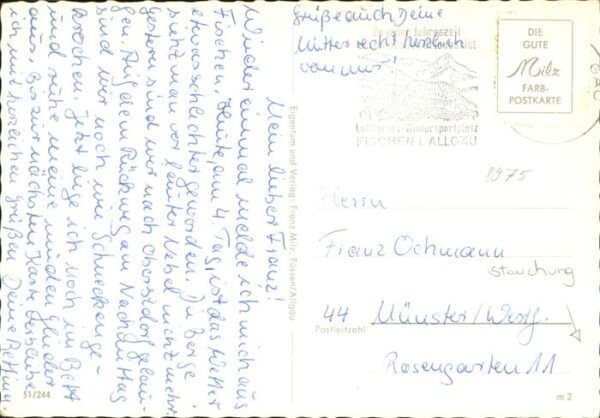 Mein lieber Franz!
Wieder einmal melde ich mich aus
Fischen. Heute, am 4. Tag, ist das Wetter
etwas schlechter geworden. Die Berge
sieht man vor lauter Nebel nicht mehr.
Gestern sind wir nach Oberstdorf gelau-
fen. Auf dem Rückweg am Nachmittag
sind wir noch wie Schnecken ge-
krochen. Jetzt liege ich noch im Bett
und ruhe meine müden Glieder
aus. Bis zur nächsten Karte verbleibe
ich mit herzlichen Grüßen Deine Bettina
Grüße auch Deine
Mutter recht herzlich
von mir!
Zu jeder Jahreszeit
Luftkurort - Wintersportplatz
FISCHEN I. ALLGÄU
DIE
GUTE
Milz
FARB-
POSTKARTE
Eigentum und Verlag: Franz Milz, Füssen/Allgäu
8975
Herrn
Franz Ochmann
Stauchung
44 Münster/Westf.
Postleitzahl
Rosengarten 11
51/244
m 2